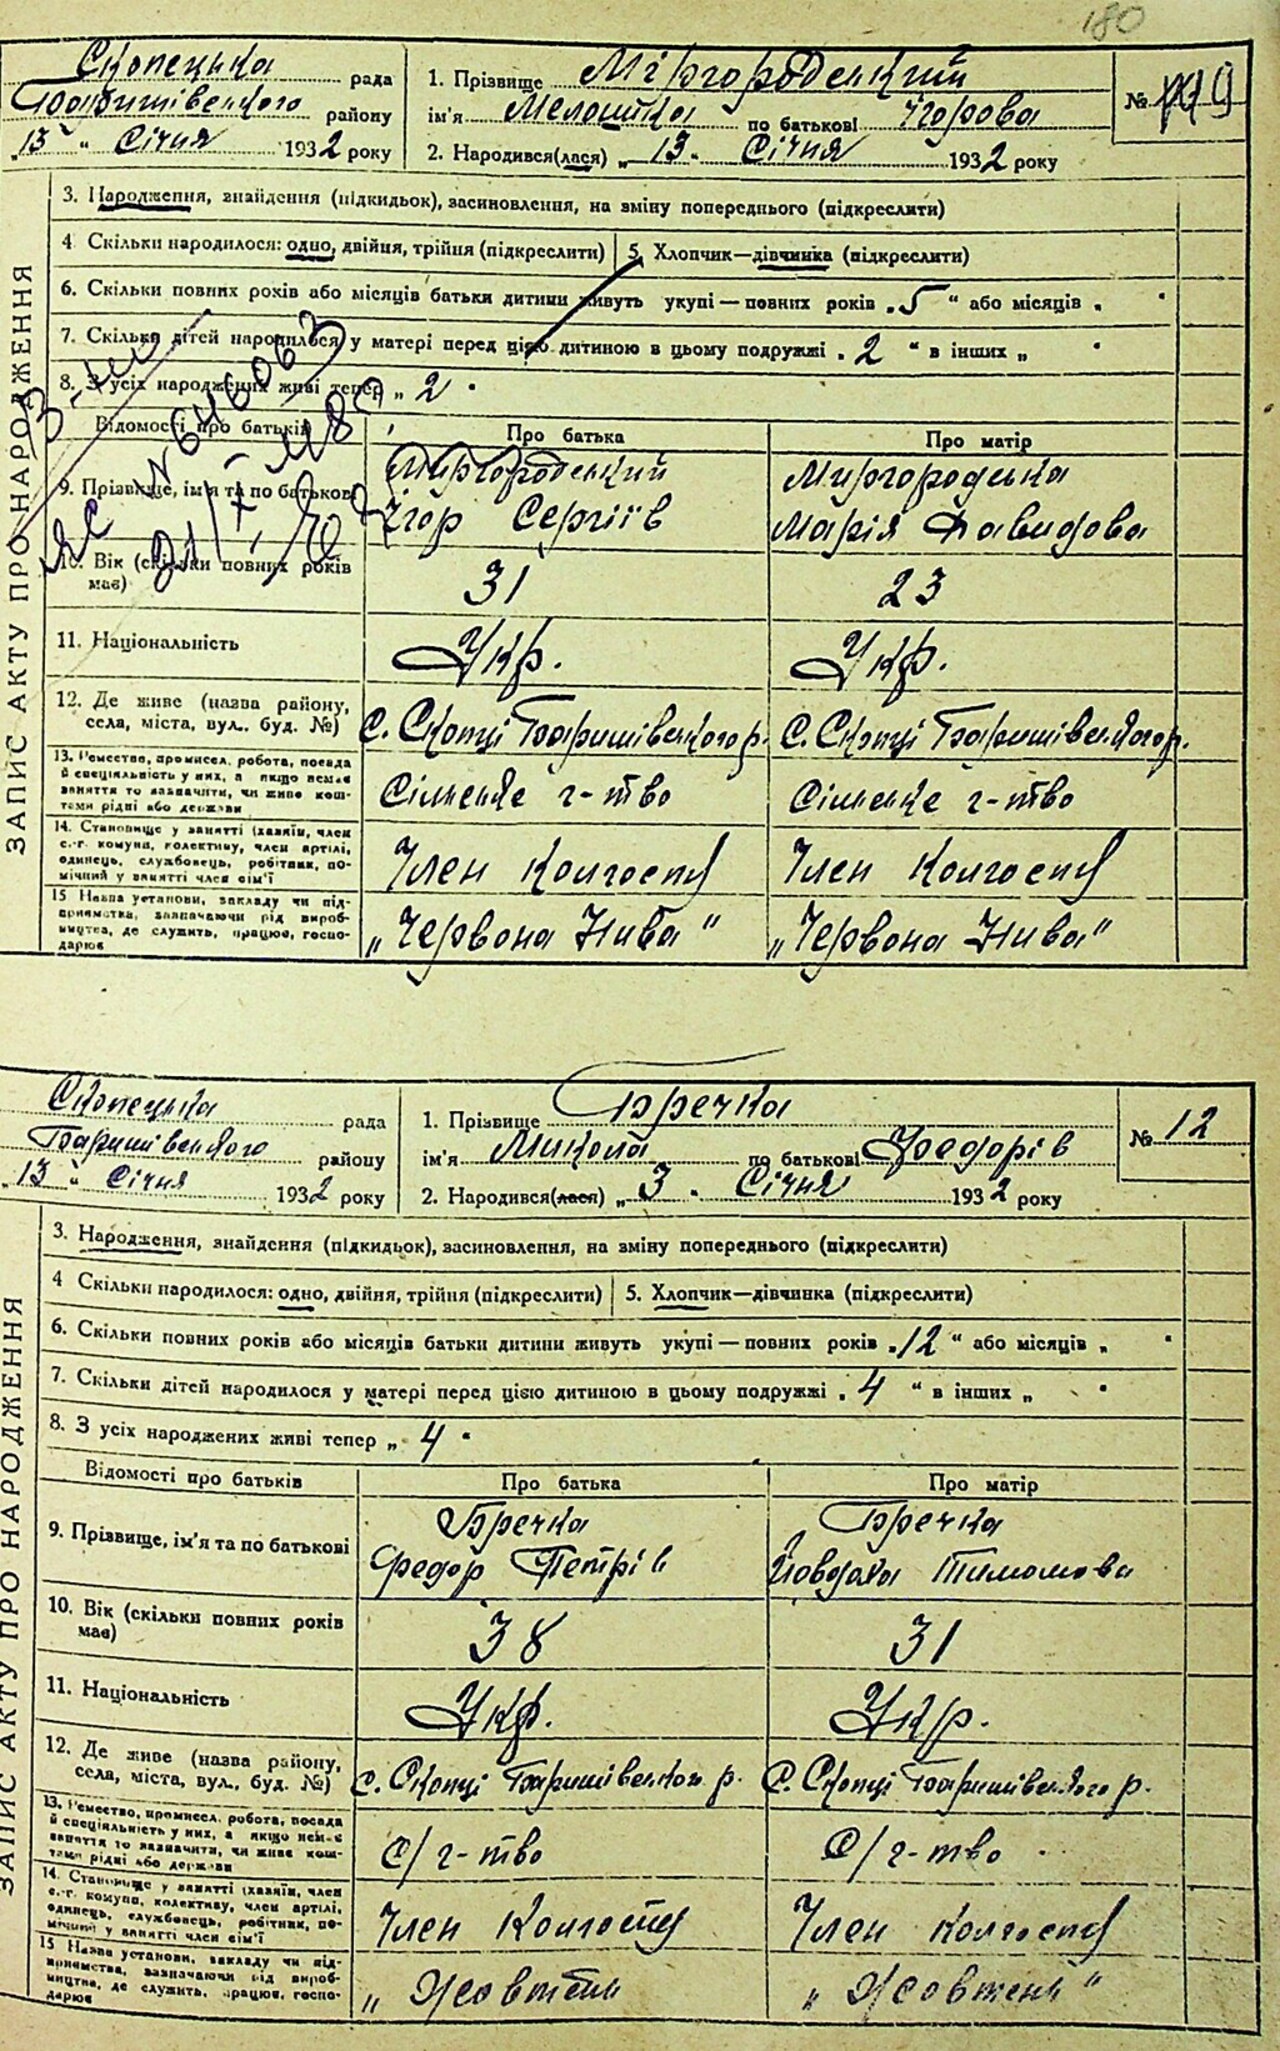 180
Скопецька рада
Баришівського району
„13" Січня 1932 року
1. Прізвище Міргородський
ім'я Мелашка по батькові Ігорова
2. Народився(лася) „13" Січня 1932 року
№ 9
ЗАПИС АКТУ ПРО НАРОДЖЕННЯ
3. Народження, знайдення (підкидьок), засиновлення, на зміну попереднього (підкреслити)
4 Скільки народилося: одно, двійня, трійня (підкреслити) 5. Хлопчик—дівчинка (підкреслити)
6. Скільки повних років або місяців батьки дитини живуть укупі — повних років „5" або місяців „ "
7. Скільки дітей народилося у матері перед цією дитиною в цьому подружжі „2" в інших „ "
8. З усіх народжених живі тепер „2"
№ 646063
Відомості про батьків Про батька Про матір
9. Прізвище, ім'я та по батькові
Миргородський Миргородська
Ігор Сергіїв Марія Давидова
10. Вік (скільки повних років має) 31 23
11. Національність Укр. Укр.
12. Де живе (назва району, села, міста, вул. буд. №) С. Скопці Баришівського р. С. Скопці Баришівського р.
13. Ремество, промисел, робота, посада
й спеціяльність у них, а якщо немає
заняття то зазначити, чи живе кош-
тами рідні або держави
Сільське г-тво Сільське г-тво
14. Становище у занятті (хазяїн, член
с.-г. комуни, колективу, член артілі,
одинець, службовець, робітник, по-
мічний у занятті член сім'ї
Член колгоспу Член колгоспу
15 Назва установи, закладу чи під-
приємства, зазначаючи рід вироб-
ництва, де служить, працює, госпо-
дарює
„Червона Нива" „Червона Нива"
Скопецька рада
Баришівського району
„13" Січня 1932 року
1. Прізвище Бречка
ім'я Микола по батькові Федорів
2. Народився(лася) „3" Січня 1932 року
№ 12
ЗАПИС АКТУ ПРО НАРОДЖЕННЯ
3. Народження, знайдення (підкидьок), засиновлення, на зміну попереднього (підкреслити)
4 Скільки народилося: одно, двійня, трійня (підкреслити) 5. Хлопчик—дівчинка (підкреслити)
6. Скільки повних років або місяців батьки дитини живуть укупі — повних років „12" або місяців „ "
7. Скільки дітей народилося у матері перед цією дитиною в цьому подружжі „4" в інших „ "
8. З усіх народжених живі тепер „4"
Відомості про батьків Про батька Про матір
9. Прізвище, ім'я та по батькові
Бречка Бречка
Федор Петрів Йовдоха Тимошова
10. Вік (скільки повних років має) 38 31
11. Національність Укр. Укр.
12. Де живе (назва району, села, міста, вул., буд. №) С. Скопці Баришівського р. С. Скопці Баришівського р.
13. Ремество, промисел, робота, посада
й спеціяльність у них, а якщо немає
заняття то зазначити, чи живе кош-
тами рідні або держави
С/г-тво С/г-тво
14. Становище у занятті (хазяїн, член
с.-г. комуни, колективу, член артілі,
одинець, службовець, робітник, по-
мічний у занятті член сім'ї
Член колгоспу Член колгоспу
15 Назва установи, закладу чи під-
приємства, зазначаючи рід вироб-
ництва, де служить, працює, госпо-
дарює
„Жовтень „Жовтень"